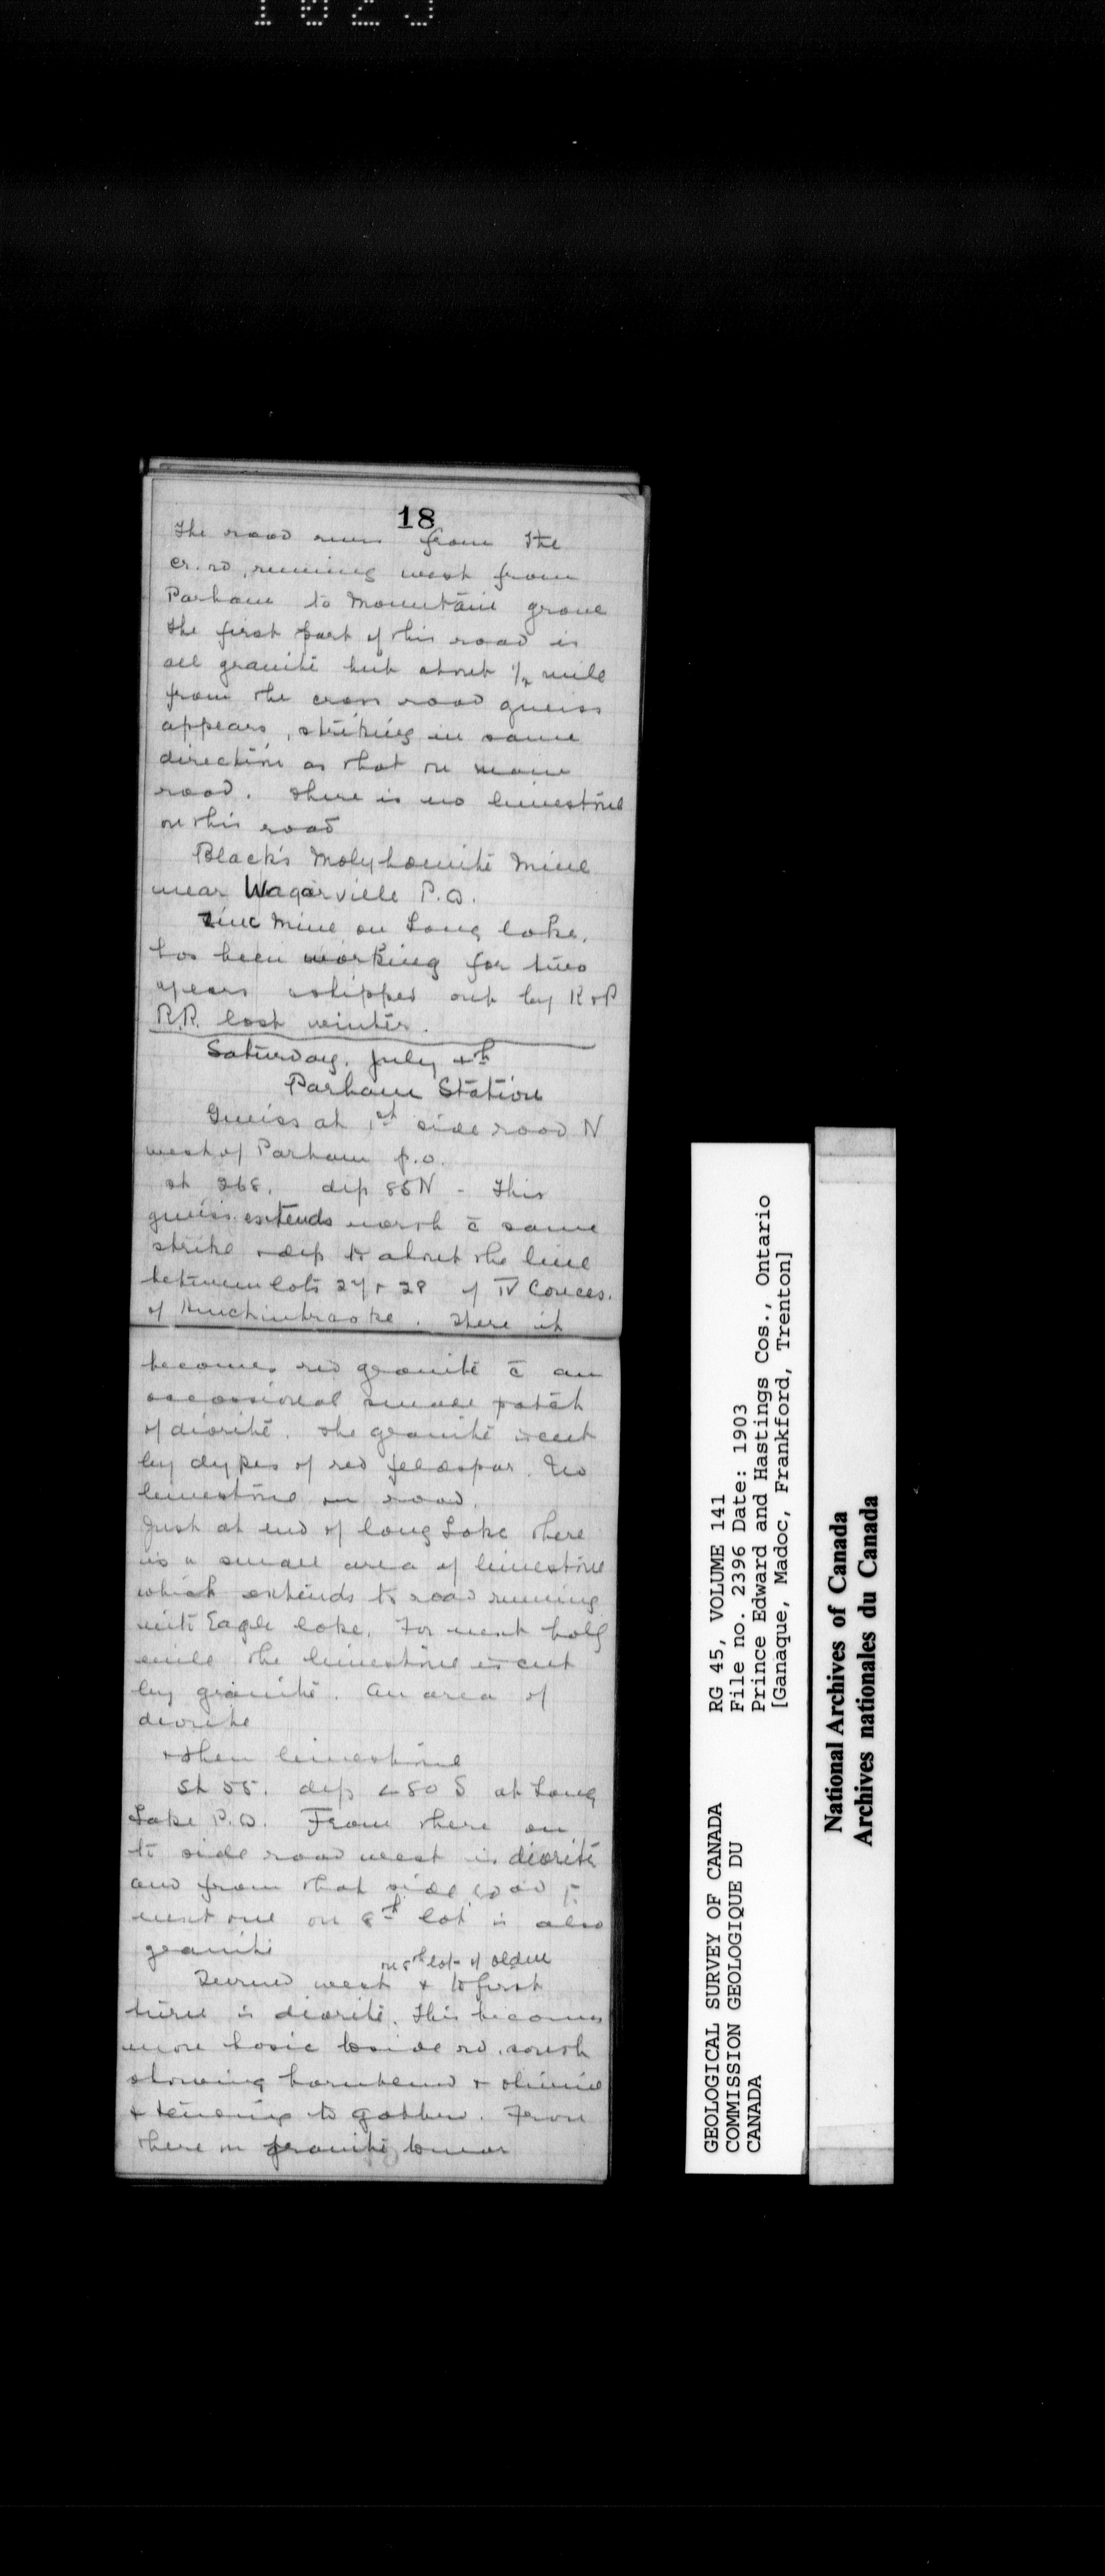 18
The road runs from the
cr. rd, running west from
Parham to Mountain grove
the first part of this road is
all granite but about 1/2 mile
from the cross road gneiss
appears, striking in same
direction as that on main
road. There is no limestone
on this road
Black's Molybdenite Mine
near Wagarville P.O.
Zinc Mine on Long lake,
has been working for two
years & shipped out by K & P
R.R. last winter.
Saturday, July 4th
Parham Station
Gneiss at 1st side road N
west of Parham p.o.
st 268. dip 85N - This
gneiss extends north c̄ same
strike & dip to about the line
between lots 27 & 28 of IV Conces.
of Hinchinbrooke. There it
becomes red granite c̄ an
occassional small patch
of diorite. The granite is cut
by dykes of red feldspar. No
limestone on road.
Just at end of long Lake there
is a small area of limestone
which extends to road running
into Eagle lake. For next half
mile the limestone is cut
by granite. An area of
diorite
& then limestone
St 55. dip < 80 S at Long
Lake P.O. From there on
to side road west is diorite
and from that side road to
next one on 8th lot is also
granite
on 8th lot of olden
Turned west & to first
turn is diorite. This becomes
more basic beside rd. south
showing hornblend & olivine
& tending to gabbro. From
there on granite to near
GEOLOGICAL SURVEY OF CANADA
COMMISSION GEOLOGIQUE DU
CANADA
RG 45, VOLUME 141
File no. 2396 Date: 1903
Prince Edward and Hastings Cos., Ontario
[Ganaque, Madoc, Frankford, Trenton]
National Archives of Canada
Archives nationales du Canada